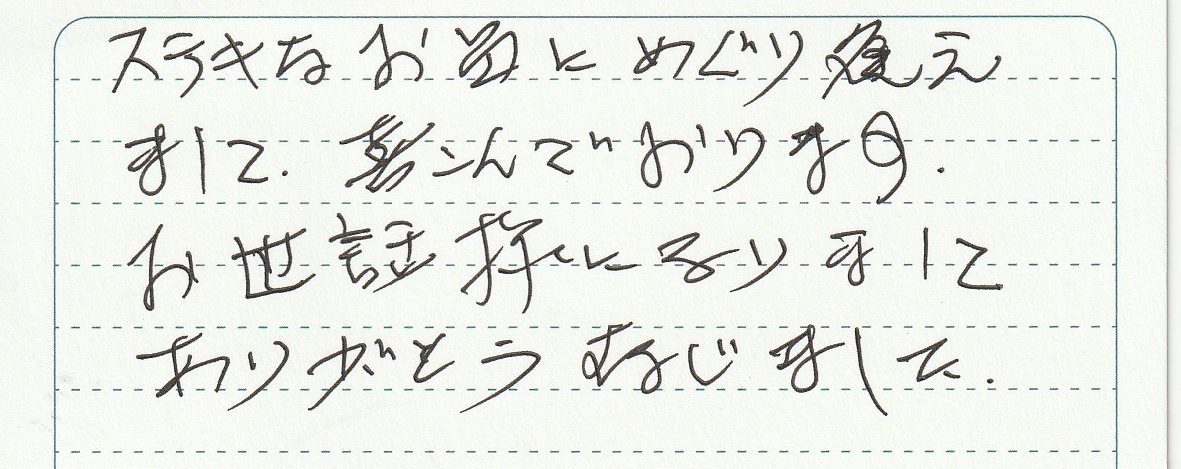 ステキなお皿にめぐり逢え
まして.喜こんでおります.
お世話様になりまして
ありがとうむじました.